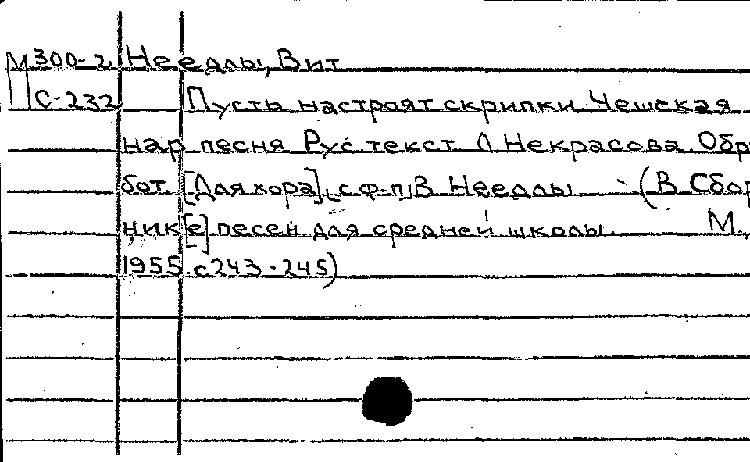 М 300-2 Неедлы, Вит
С-232 Пусть настроят скрипки Чешская
нар песня Рус текст Л Некрасова Обр
бот. [Для хора] с ф-п В Неедлы (В Сбор
ник[е] песен для средней школы. М.,
1955 с 243-245)